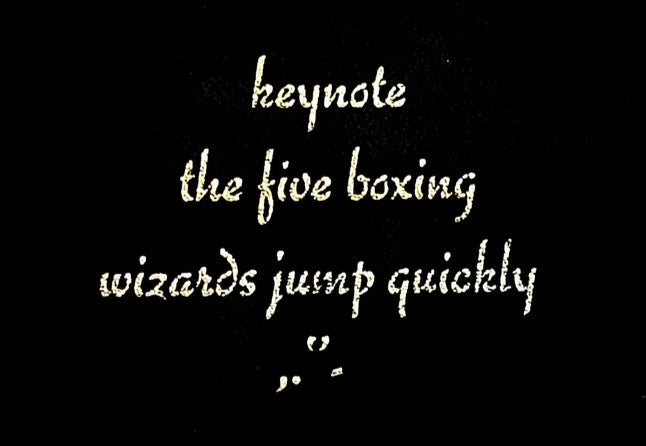 keynote
the five boxing
wizards jump quickly
,. '' -